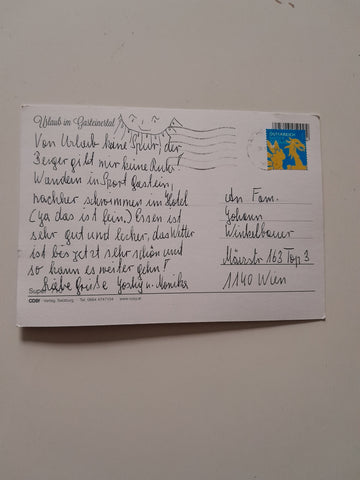 Urlaub im Gasteinertal
Von Urlaub keine Spur, der
Berger gibt mir keine Ruhe!
Wandern in Sport Gastein,
nachher schwimmen im Hotel
(ja das ist fein) Essen ist
sehr gut und lecker, das Wetter
ist bis jetzt sehr schön und
so kann es weiter gehn!
Liebe Grüße u. Monika
ÖSTERREICH
An Fam.
Johann
Winkelbauer
163 Top 3
1140 Wien
Super
Verlag, Salzburg